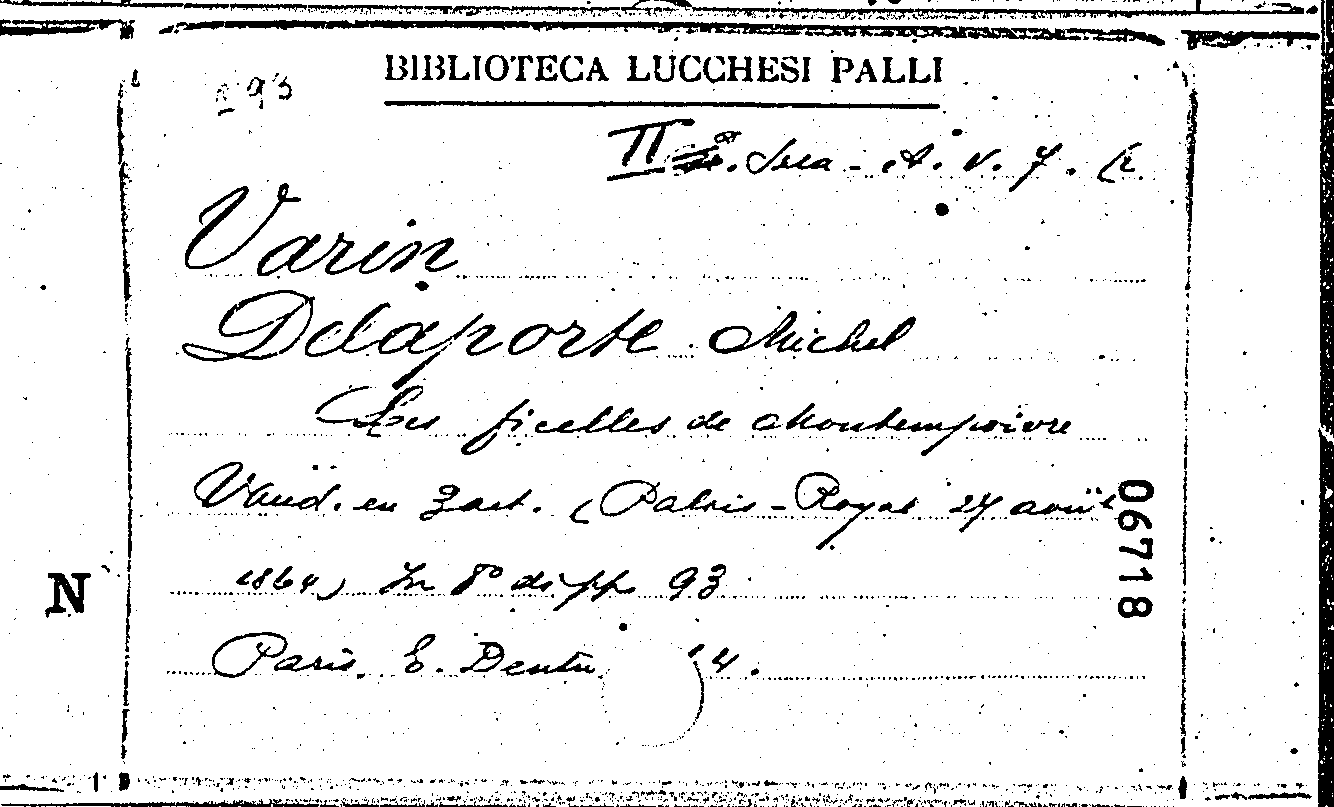 BIBLIOTECA LUCCHESI PALLI
93
II Sca - A. V. 7.
Varin
Delaporte Michel
Les ficelles de Montempoivre
Vaud. en 3 act. (Palais-Royal 27 août
1864) In 8° di pp 93
Paris. E. Dentu 4.
N
06718